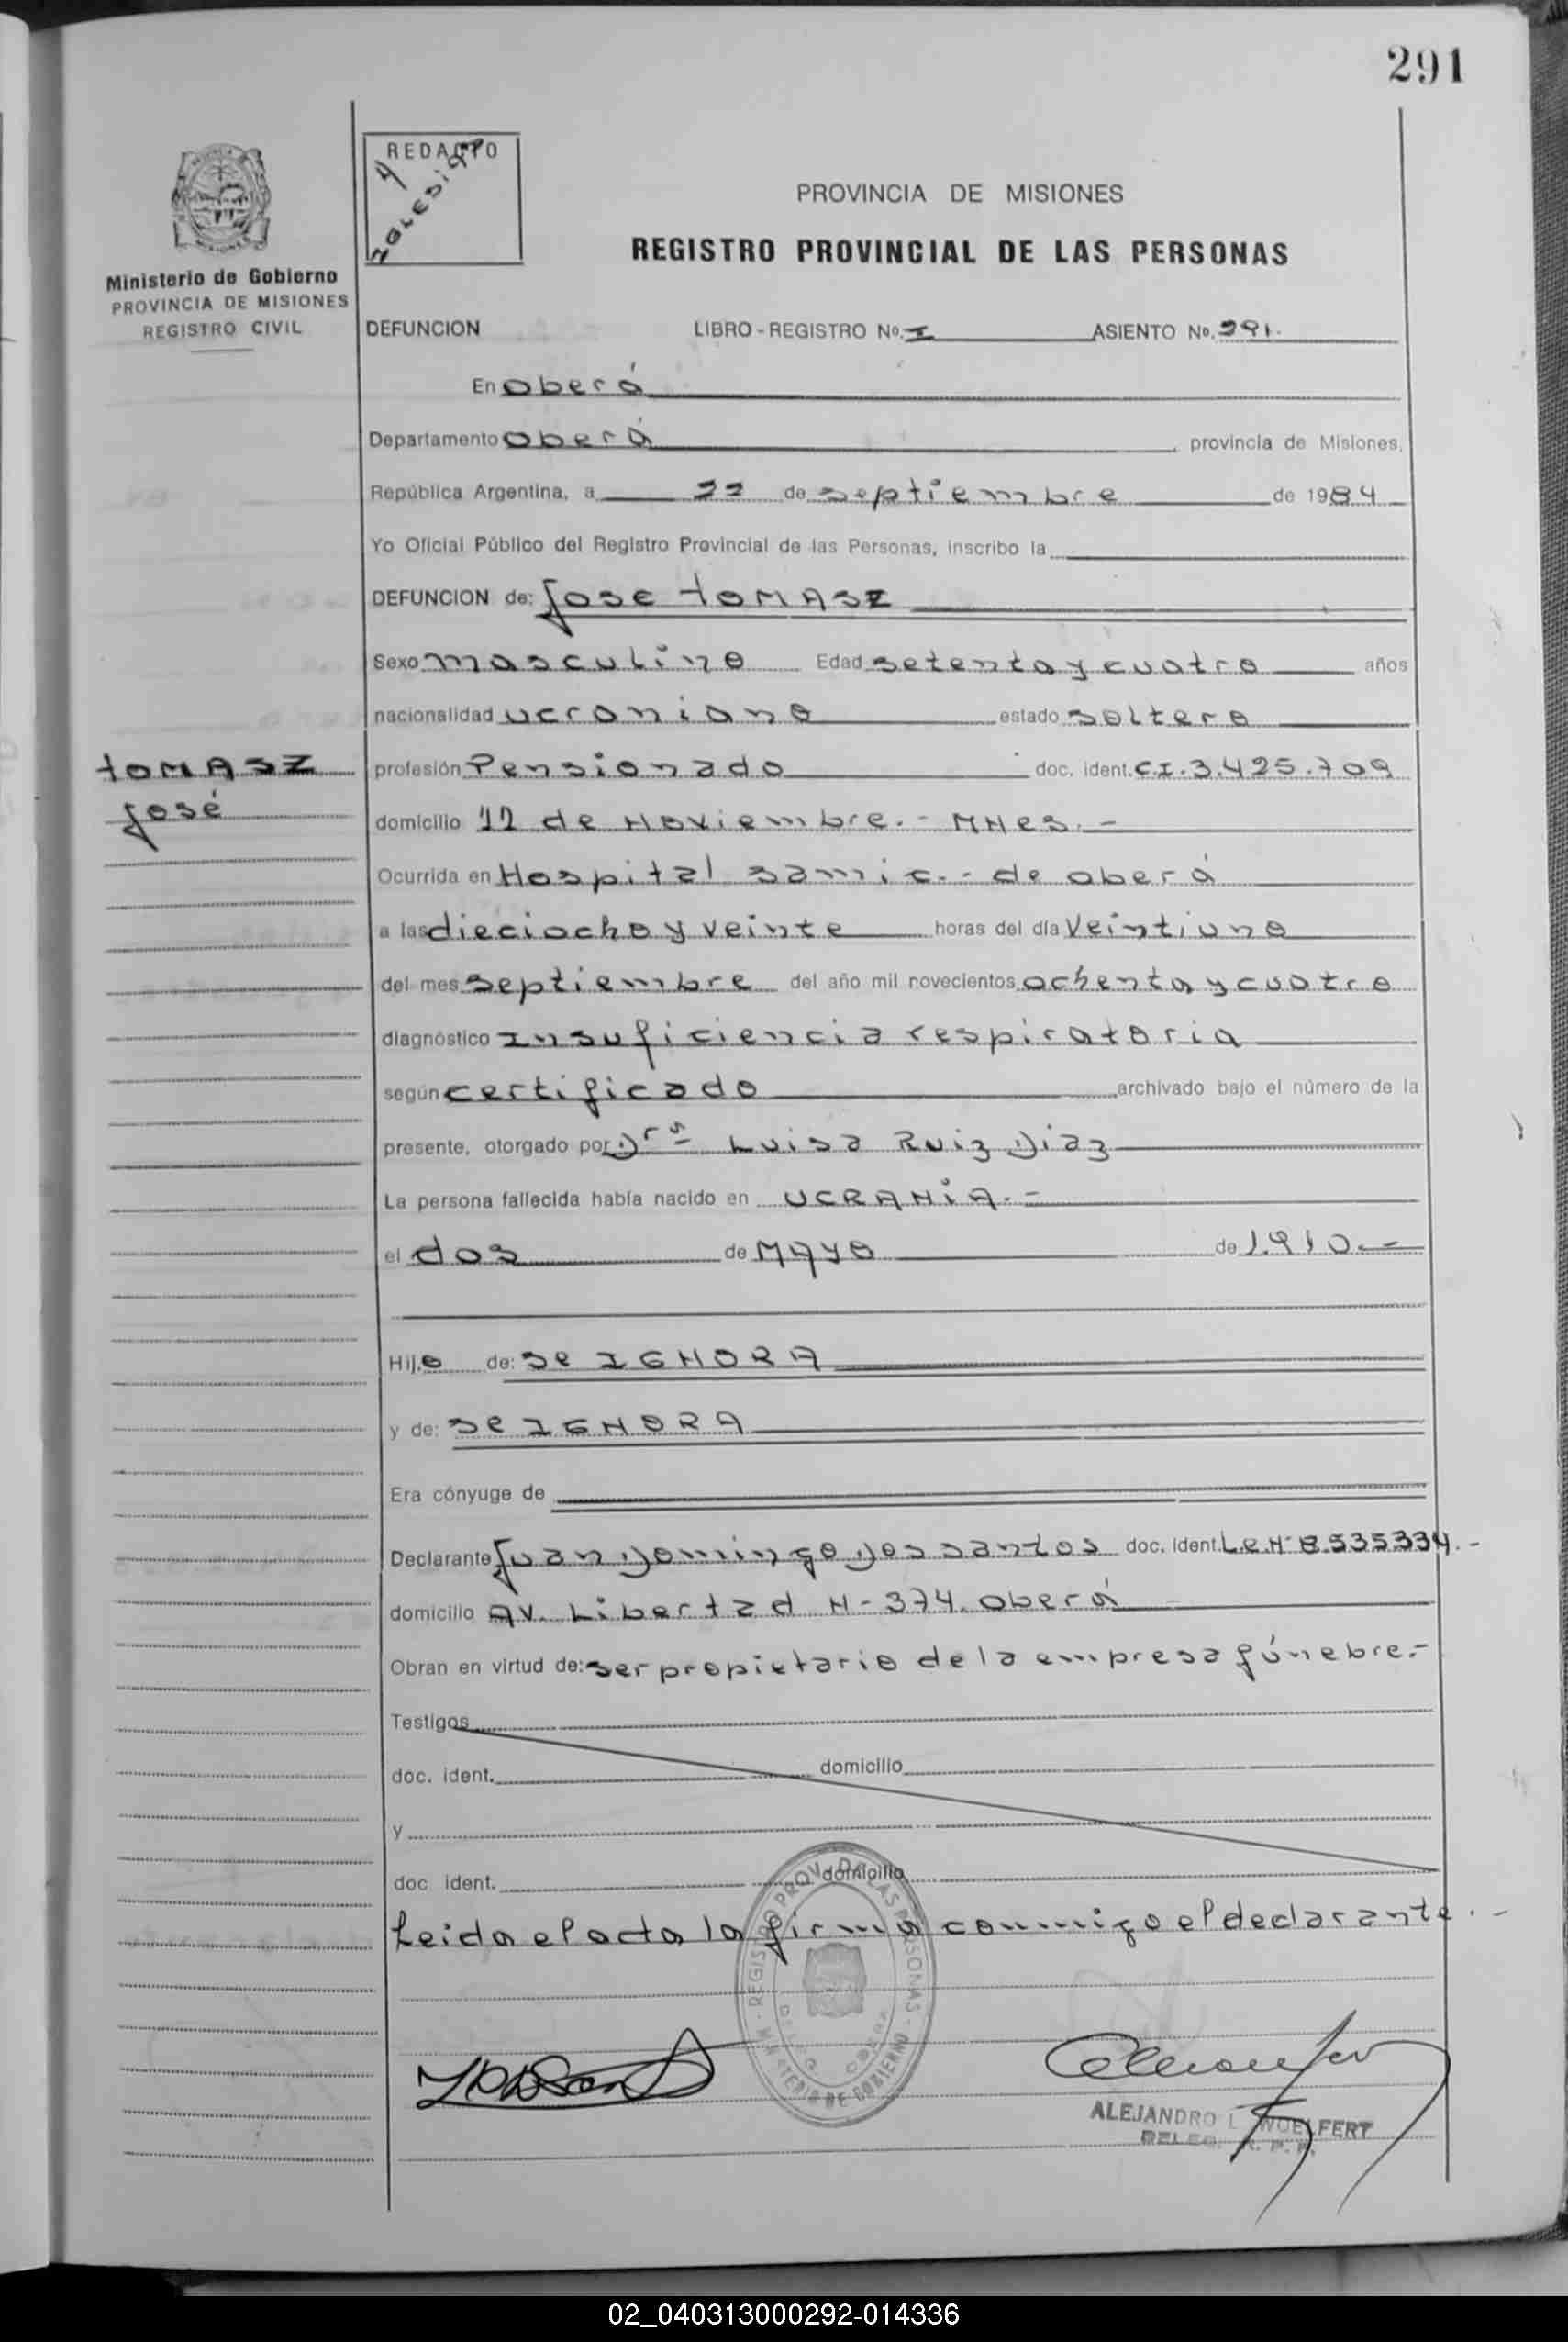 291
REDACTO
Y IGLESIAS
PROVINCIA DE MISIONES
REGISTRO PROVINCIAL DE LAS PERSONAS
Ministerio de Gobierno
PROVINCIA DE MISIONES
REGISTRO CIVIL
DEFUNCION LIBRO - REGISTRO Nº. I ASIENTO Nº. 291.
En Oberá
Departamento Oberá provincia de Misiones,
República Argentina, a 22 de septiembre de 1984
Yo Oficial Público del Registro Provincial de las Personas, inscribo la
DEFUNCION de: Jose tomASZ
Sexo masculino Edad setenta y cuatro años
nacionalidad ucraniano estado soltero
tomASZ
José
profesión Pensionado doc. ident. C.I. 3.425.709
domicilio 12 de Noviembre.- MNes.-
Ocurrida en Hospital samic.- de oberá
a las dieciocho y veinte horas del día Veintiuno
del mes septiembre del año mil novecientos ochenta y cuatro
diagnóstico Insuficiencia respiratoria
según certificado archivado bajo el número de la
presente, otorgado por Dra Luisa Ruiz Diaz
La persona fallecida había nacido en UCRANiA.-
el dos de MAYO de 1.910.-
Hijo de: se IGNORA
y de: se IGNORA
Era cónyuge de
Declarante Juan Domingo Dos santos doc. Ident. L.e.Nº 8.535334.-
domicilio AV. Libertad N-374. Oberá
Obran en virtud de: ser propietario de la empresa fúnebre.-
Testigos
doc. ident. domicilio
y
doc ident. domicilio
Leida el acta la firma conmigo el declarante.-
REGISTRO PROV. DE LAS PERSONAS - MINISTERIO DE GOBIERNO
ALEJANDRO L WOELFERT
DELEG. R. P. P.
02_040313000292-014336